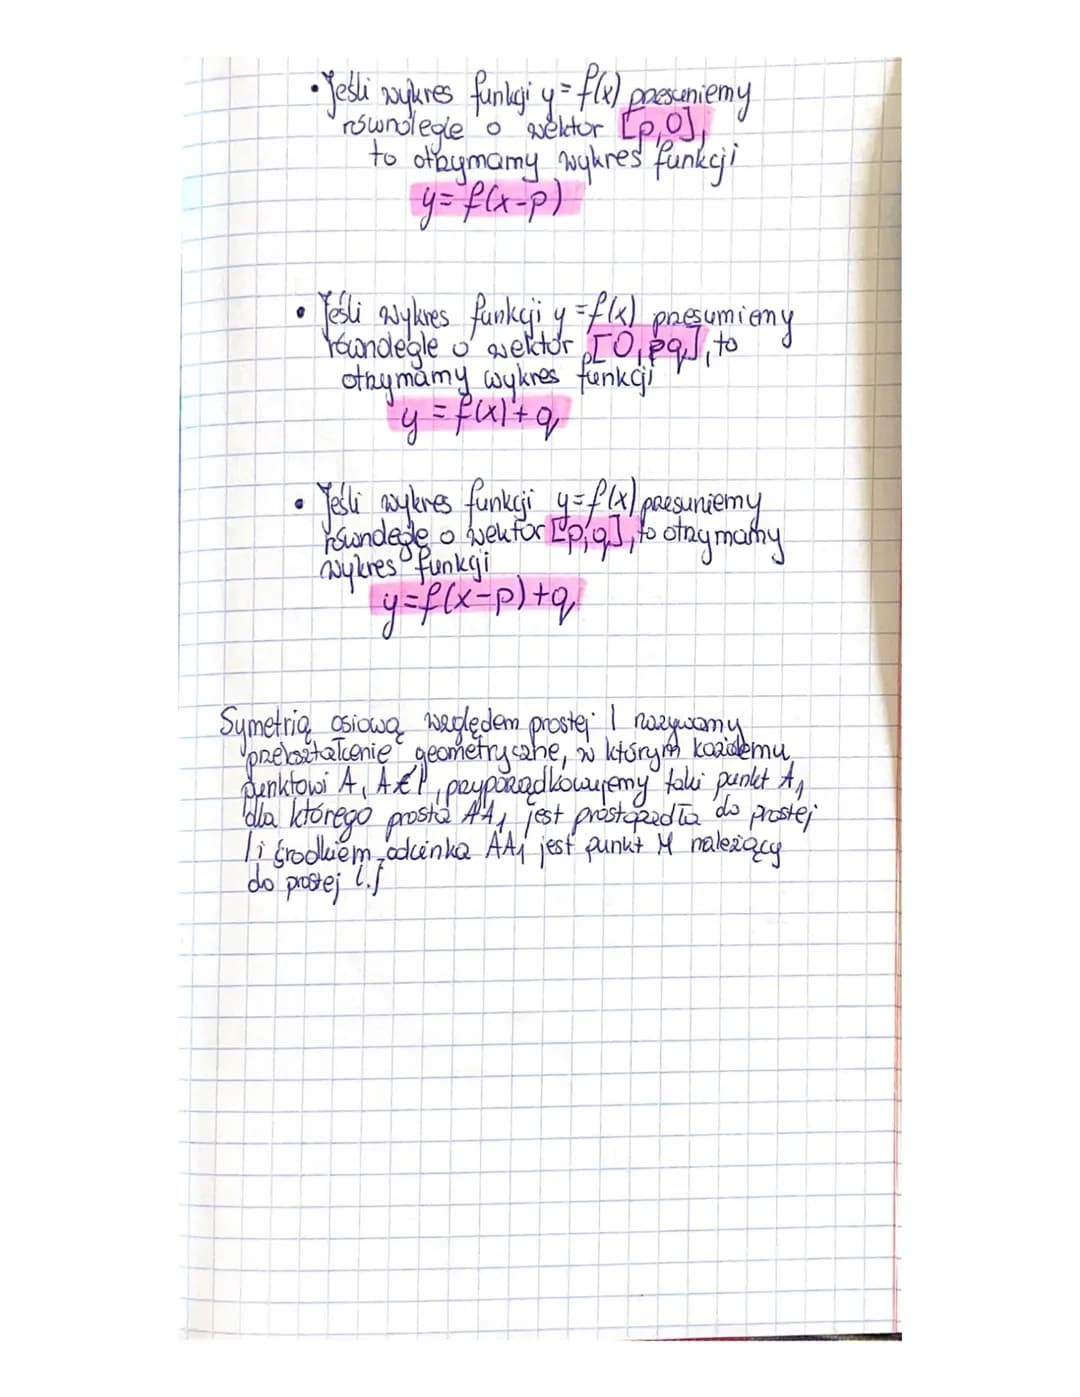 • Jeśli wykres funkcji y = f(x) przesuniemy
równolegle o wektor [p,0],
to otrzymamy wykres funkcji
y = f(x-p)
• Jeśli wykres funkcji y = f(x) przesumiemy
równolegle o wektor [0, q], to
otrzymamy wykres funkcji
y = f(x) + q
• Jeśli wykres funkcji y = f(x) przesuniemy
równolegle o wektor [p,q], to otrzymamy
wykres funkcji
y = f(x-p) + q
Symetrią osiową względem prostej l nazywamy
przekształcenie geometryczne, w którym każdemu
punktowi A, A∉l, przyporządkowujemy taki punkt A₁
dla którego prosta AA₁ jest prostopadła do prostej
l i środkiem odcinka AA₁ jest punkt M należący
do prostej l.